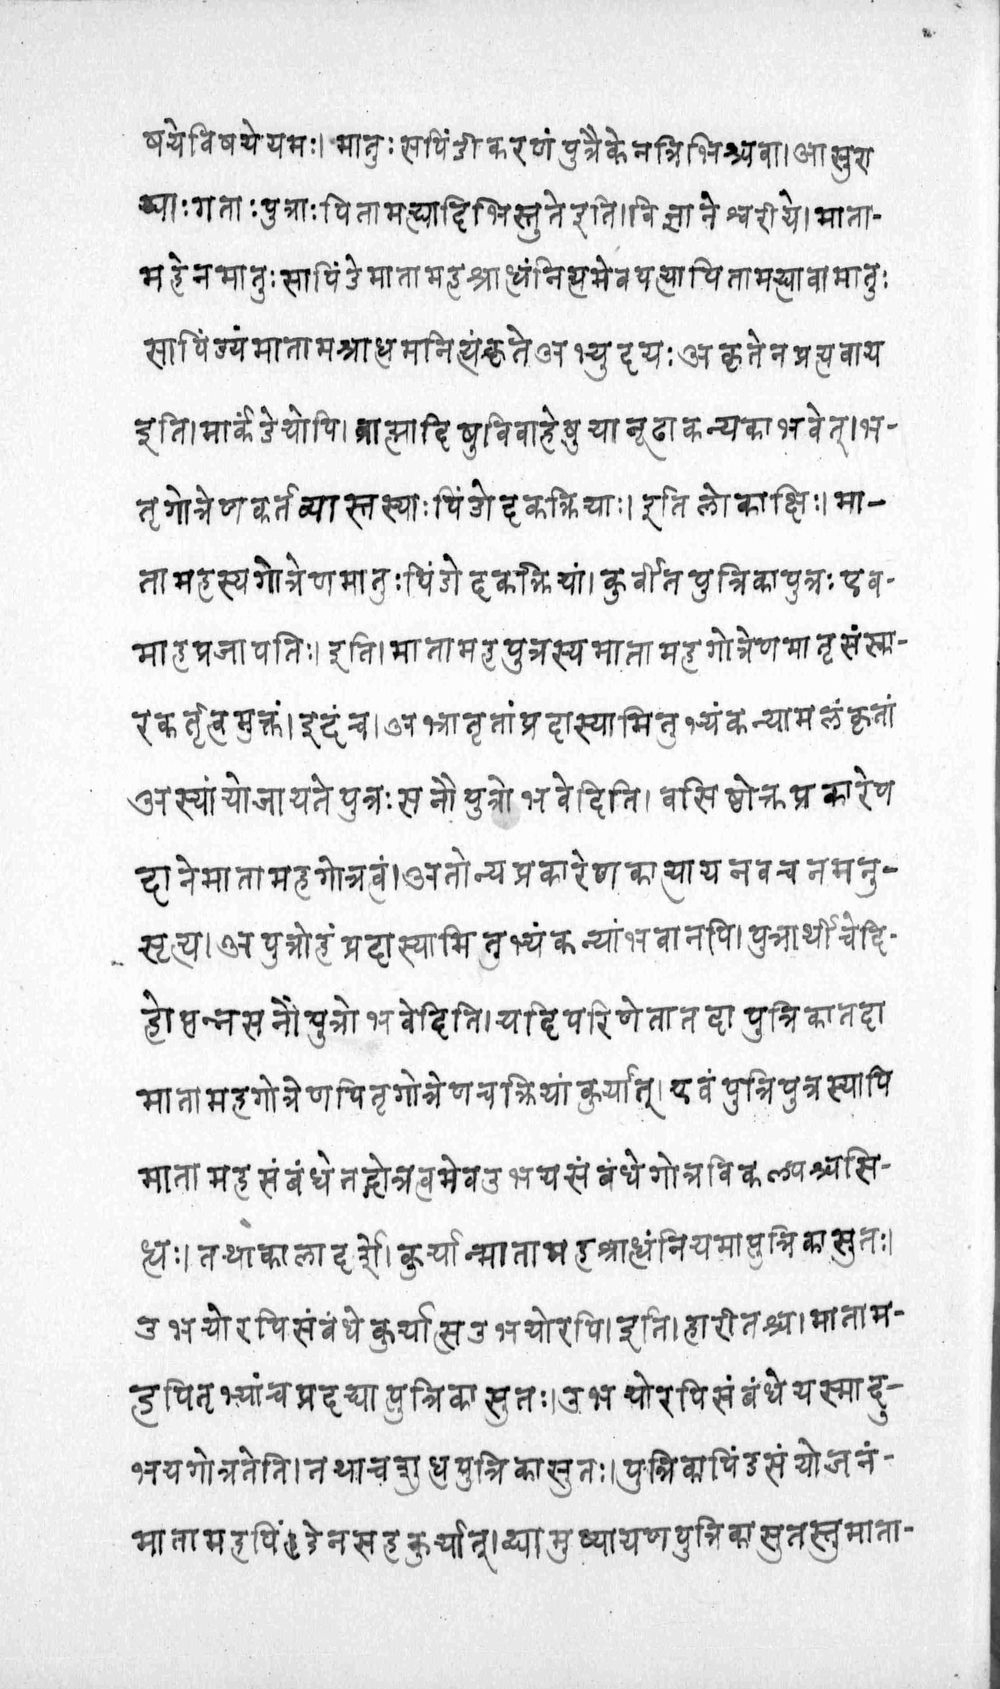 षयेविषयेयमः। मातुः सपिंडीकरणं पुत्रैकेनत्रिभिश्चवा। आसुरा
द्याः गताः पुत्राः पितामह्यादिभिस्तुते इति। विज्ञानेश्वरीये। माता-
महेनमातुः सापिंडेमातामहश्राधंनित्यमेवपत्यापितामह्यावामातुः
सापिंड्यंमातामश्राधमनित्यंकृतेअभ्युदयः अकृतेनप्रत्यवाय
इति। मार्कंडेयोपि। ब्राह्मादिषुविवाहेषुयानूढाकन्यकाभवेत्। भ-
तृगोत्रेणकर्तव्यास्तस्याः पिंडोदकक्रियाः। इति लोकाक्षिः। मा-
तामहस्यगोत्रेणमातुः पिंडोदकक्रियां। कुर्वीतपुत्रिकापुत्रः एव-
माहप्रजापतिः। इति। मातामहपुत्रस्यमातामहगोत्रेणमातृसंस्का-
रकर्तृत्वमुक्तं। इदंच। अभ्रातृतांप्रदास्यामितुभ्यंकन्यामलंकृतां
अस्यांयोजायतेपुत्रः सनौपुत्रोभवेदिति। वसिष्ठोक्तप्रकारेण
दानेमातामहगोत्रत्वं। अतोन्यप्रकारेणकात्यायनवचनमनु-
सृत्य। अपुत्रोहंप्रदास्यामितुभ्यंकन्यांभवानपि। पुत्रार्थीचेदि-
होत्पन्नसनौपुत्रोभवेदिति। यदिपरिणेतातदापुत्रिकातदा
मातामहगोत्रेणपितृगोत्रेणचक्रियांकुर्यात्। एवंपुत्रिपुत्रस्यापि
मातामहसंबंधेनद्गोत्रत्वमेवउभयसंबंधेगोत्रविकल्पश्चसि-
ध्यः। तथाकालादर्शे। कुर्यान्मातामहश्राधंनियमात्पुत्रिकासुतः।
उभयोरपिसंबंधेकुर्यात्सउभयोरपि। इति। हारीतश्च। माताम-
हपितृभ्यांचप्रदद्यात्पुत्रिकासुतः। उभयोरपिसंबंधेयस्मादु-
भयगोत्रतेति। तथाचशुधपुत्रिकासुतः। पुत्रिकापिंडसंयोजनं-
मातामहपिंडेनसहकुर्यात्। द्यामुष्यायणपुत्रिकासुतस्तुमाता-